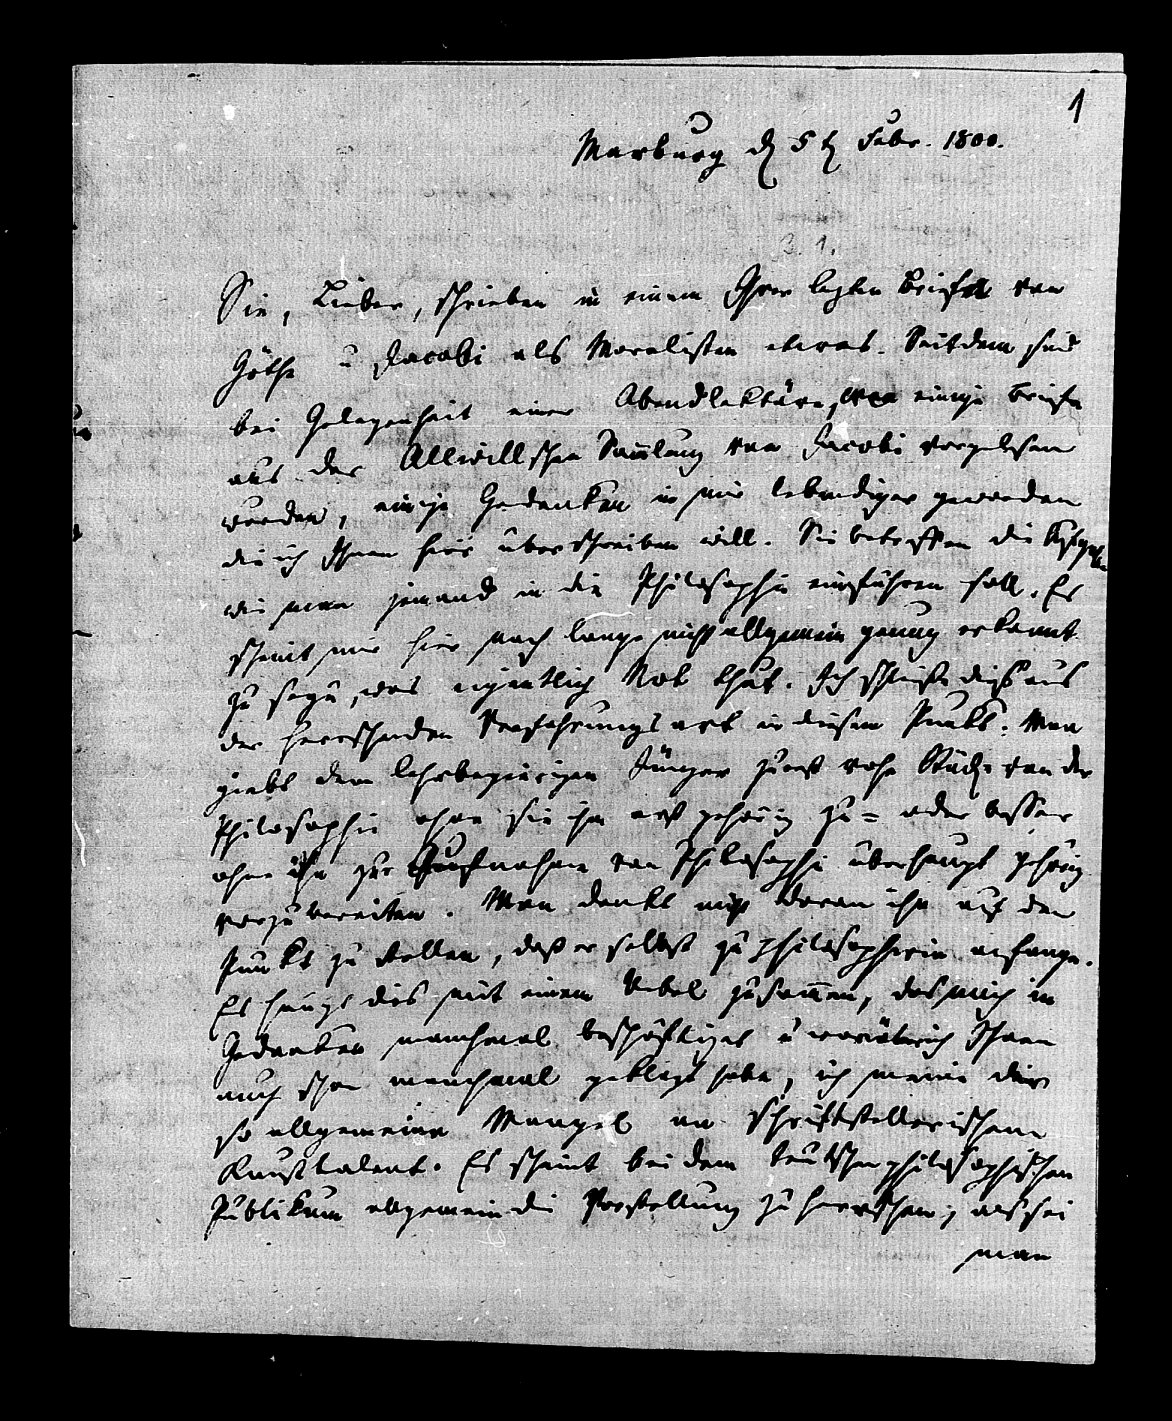 1
Marburg d 5t Febr. 1800.
Sie, Lieber, schrieben in einem Ihrer lezten Briefe von
Göthe u Jacobi als Moralisten etwas. Seitdem sind
bei Gelegenheit einer Abendlektüre, wo einige Briefe
aus der Allwillschen Samlung von Jacobi vorgelesen
wurden, einige Gedanken in mir lebendiger geworden
die ich Ihnen hier überschreiben will. Sie betreffen die
wie man jemand in die Philosophie einführen soll. Es
scheint mir hier noch lange nicht allgemein genug erkannt
zu seyn, was eigentlich Not thut. Ich schließe dies aus
der herrschenden Verfahrungsart in diesem Punkt. Man
giebt dem lehrbegierigen Jünger zuerst rohe Stücke von der
Philosophie ohne sie ihm erst gehörig zu= oder besser
ohne ihn zur Aufnahme von Philosophie überhaupt gehörig
vorzubereiten. Man denkt nicht daran ihn auf den
Punkt zu stellen, daß er selbst zu philosophiren anfange.
Es hängt dies mit einem Uebel zusammen, das mich in
Gedanken manchmal beschäftiget u worüber ich Ihnen
auch schon manchmal geklagt habe, ich meine den
so allgemeinen Mangel an schriftstellerischem
Kunsttalent. Es scheint bei dem teutschen philosophischen
Publikum allgemein die Vorstellung zu herrschen, als sei
man